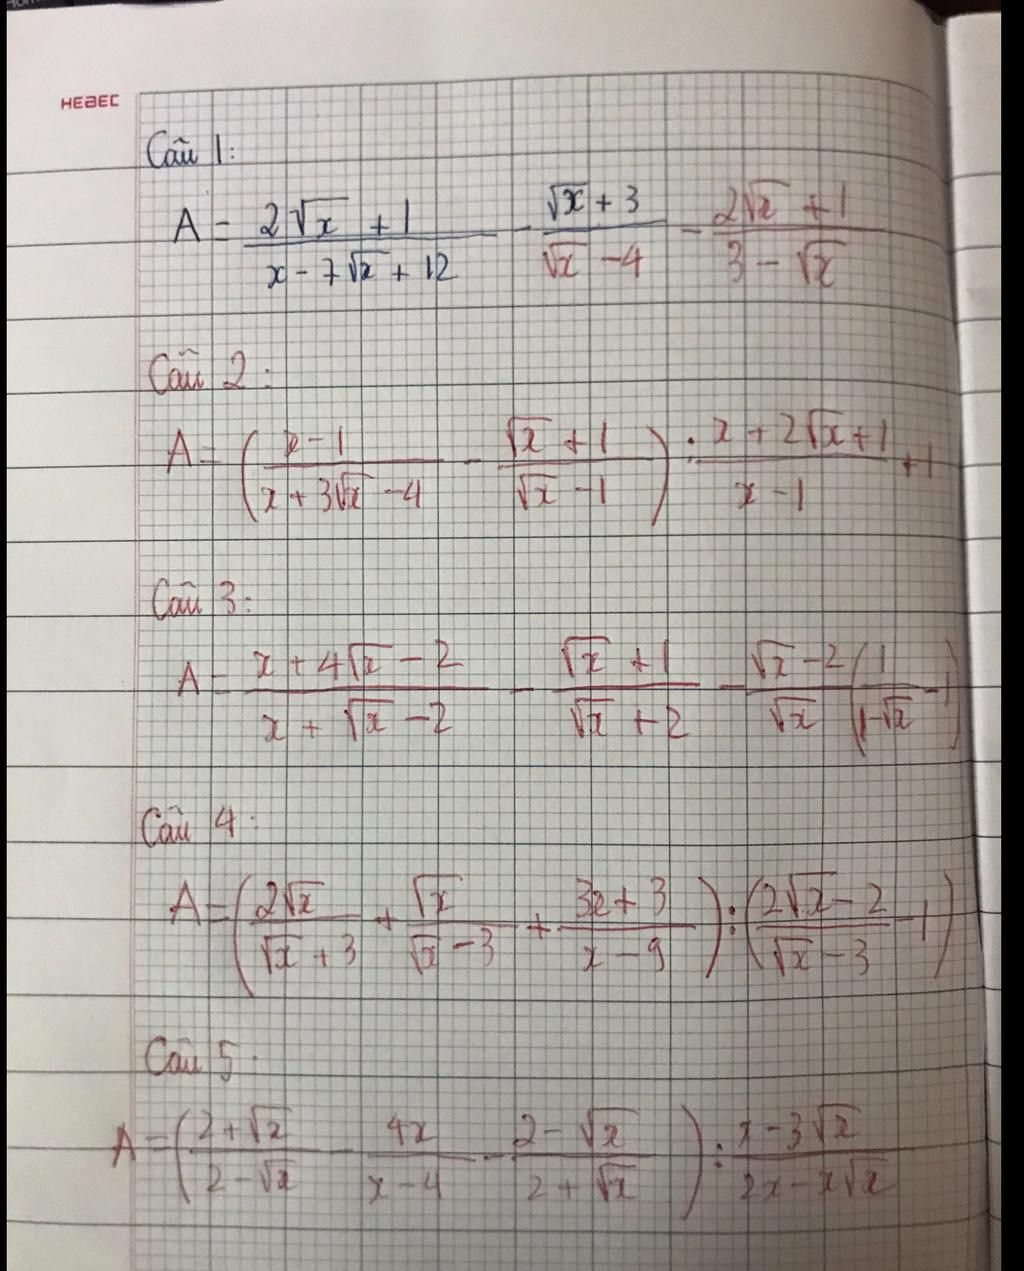 HEBEC
Câu 1:
A = (2√x + 1)/(x - 7√x + 12) - (√x + 3)/(√x - 4) - (2√x + 1)/(3 - √x)
Câu 2:
A = ((x - 1)/(x + 3√x - 4) - (√x + 1)/(√x - 1)) : (x + 2√x + 1)/(x - 1) + 1
Câu 3:
A = (x + 4√x - 2)/(x + √x - 2) - (√x + 1)/(√x + 2) - (√x - 2)/(√x) (1/(1 - √x) - 1)
Câu 4:
A = (2√x/(√x + 3) + √x/(√x - 3) + (3x + 3)/(x - 9)) : ((2√x - 2)/(√x - 3) - 1)
Câu 5:
A = ((2 + √x)/(2 - √x) - 4x/(x - 4) - (2 - √x)/(2 + √x)) : (x - 3√x)/(2x - x√x)